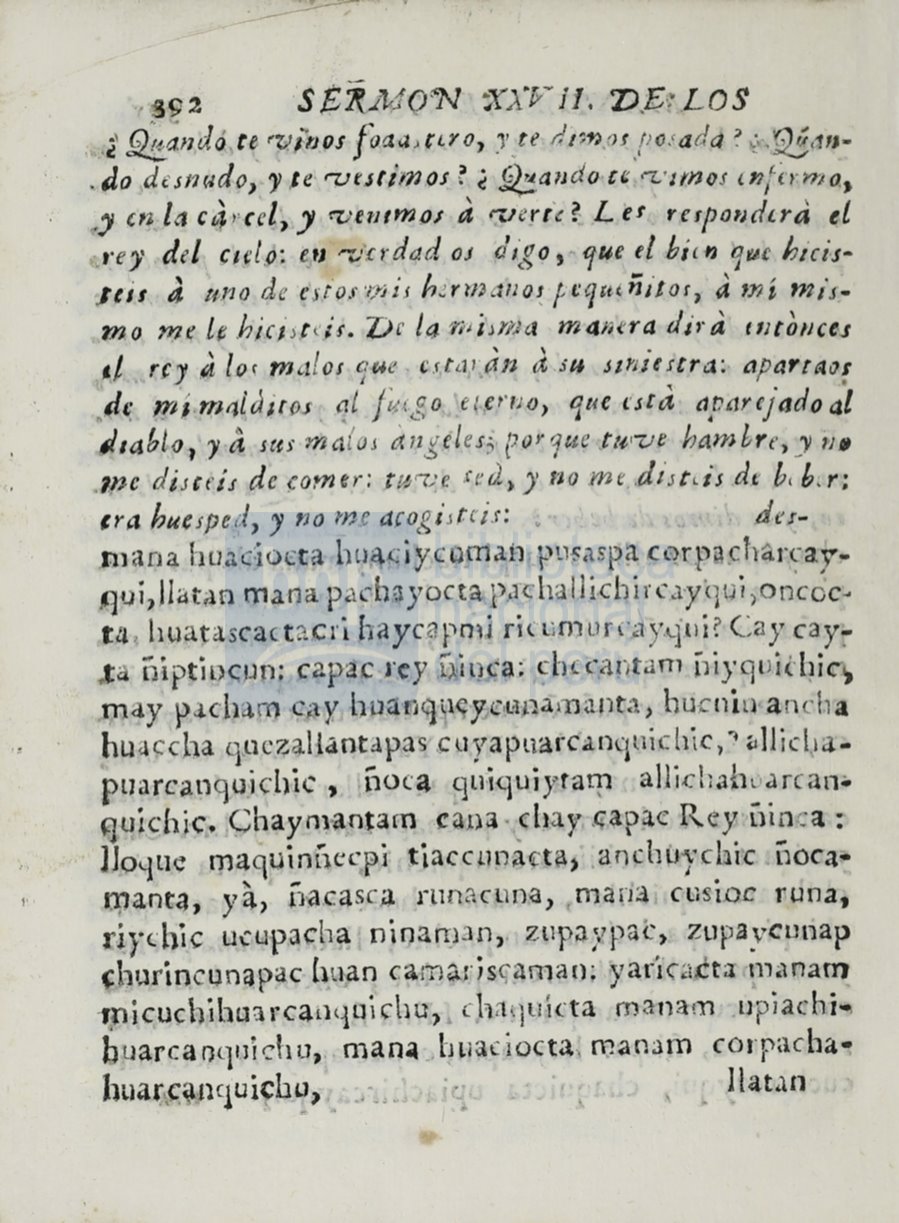 392 SERMON XXVII. DE LOS
¿ Quando te vimos foaastero, y te dimos posada? ¿ Quan-
do desnudo, y te vestimos? ¿ Quando te vimos enfermo,
y en la càrcel, y venimos à verte? Les responderà el
rey del cielo: en verdad os digo, que el bien que hicis-
teis à uno de estos mis hermanos pequeñitos, à mí mis-
mo me le hicisteis. De la misma manera dirà entònces
el rey à los malos que estaràn à su siniestra: apartaos
de mi malditos al fuego eterno, que està aparejado al
diablo, y à sus malos angeles; porque tuve hambre, y no
me disteis de comer: tuve sed, y no me disteis de beber:
era huesped, y no me acogisteis: des-
mana huaciocta huaciycuman pusaspa corpacharcay-
qui, llatan mana pachayocta pachallichircayqui, oncoc-
ta huatascactacri haycapmi ricumurcayqui? Cay cay-
ta ñiptincun: capac rey ñinca: checantam ñiyquichic,
may pacham cay huanqueycunamanta, hucnin ancha
huaccha quezallantapas cuyapuarcanquichic, allicha-
puarcanquichic, ñoca quiquiytam allichahuarcan-
quichic. Chaymantam cana chay capac Rey ñinca:
lloque maquinñecpi tiaccunacta, anchuychic ñoca-
manta, yà, ñacasca runacuna, mana cusioc runa,
riychic ucupacha ninaman, zupaypac, zupaycunap
churincunapac huan camariscaman: yaricacta manam
micuchihuarcanquichu, chaquicta manam upiachi-
huarcanquichu, mana huaciocta manam corpacha-
huarcanquichu, llatan